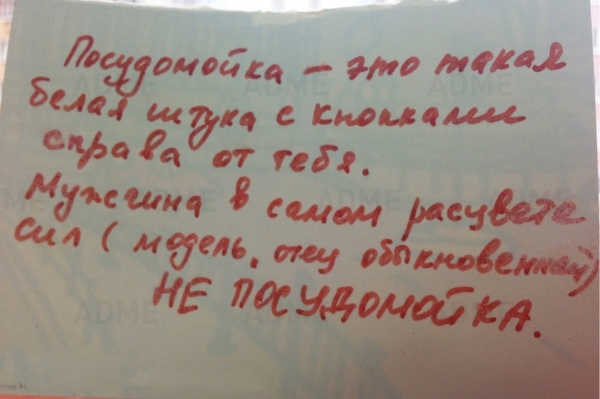 Посудомойка – это такая
белая штука с кнопками
справа от тебя.
Мужчина в самом расцвете
сил (модель „отец обыкновенный)
НЕ ПОСУДОМОЙКА.
ADME
ADME
ADME
ADME
ADME
ADME